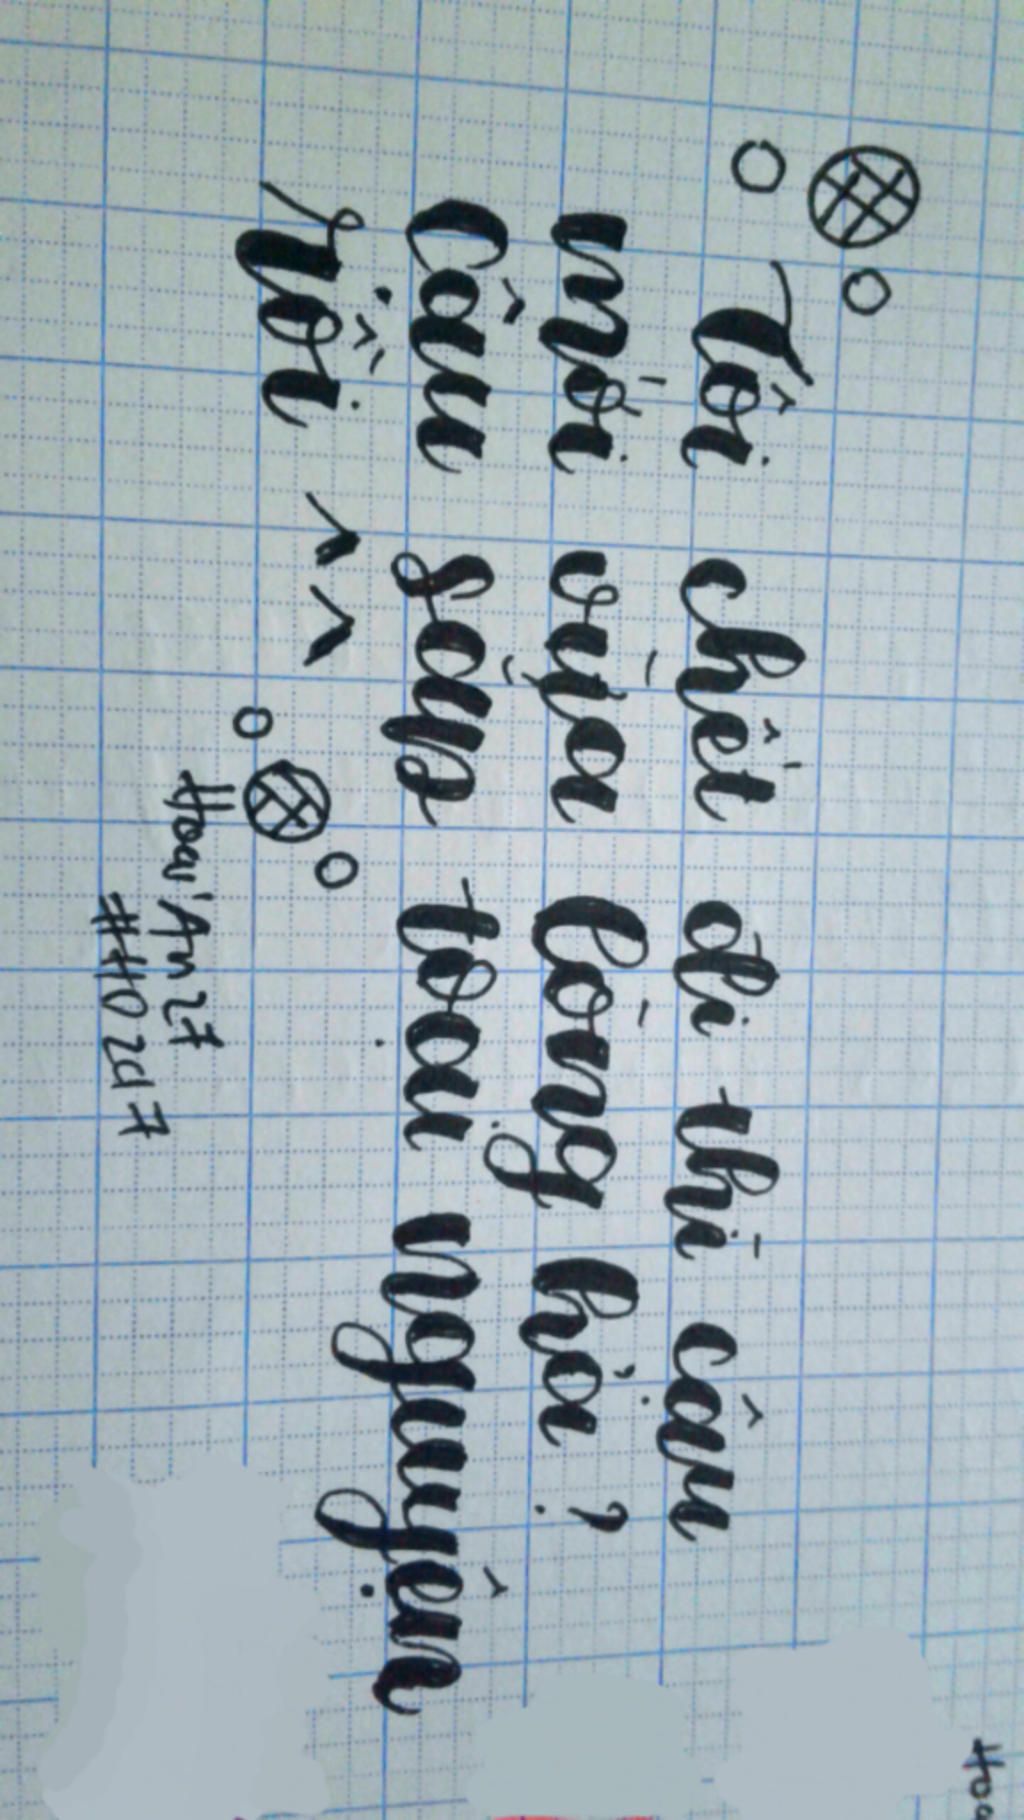 Tôi chết đi thì cậu
mới vừa lòng hả?
Cậu sắp toại nguyện
rồi ^^
Hoài An 27
#HO2d7
Hoà